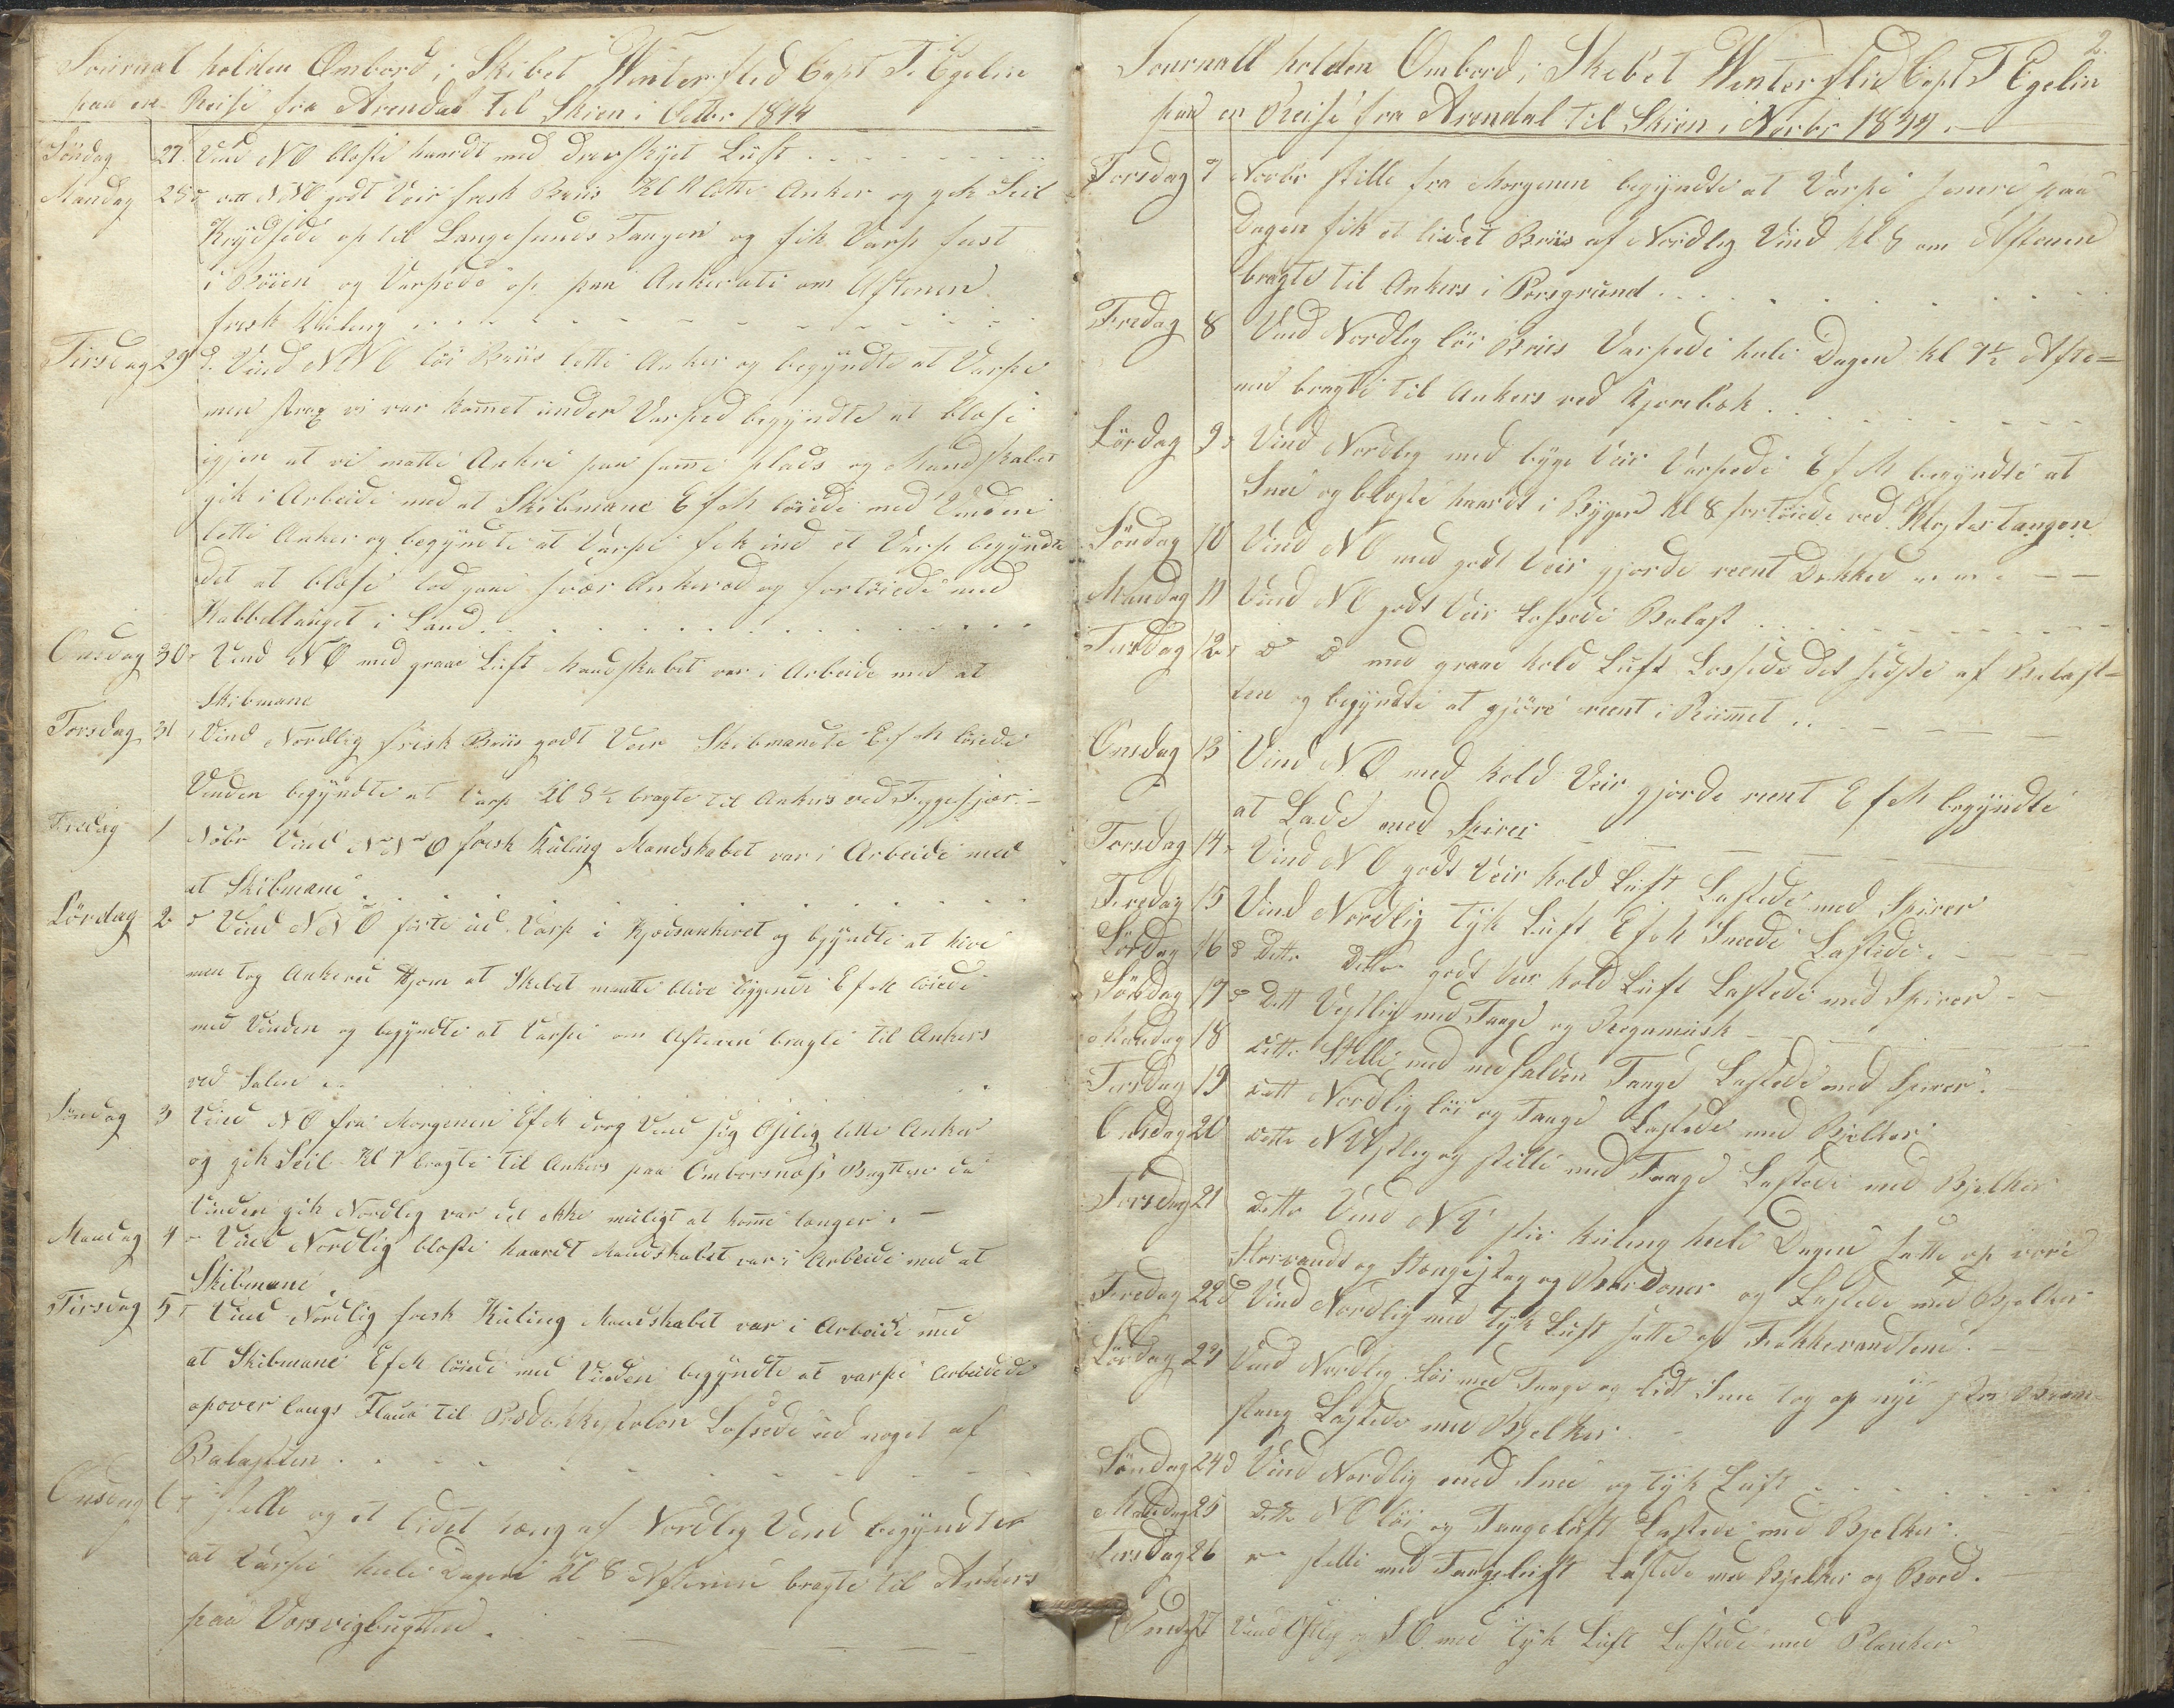 Journal holden Ombord i Skibet Vinterflid Capt F. Egelin
paa en Reise fra Arendal til Skien i Octbr 1844
Söndag 27. Vind NO blæste haardt med drevskyet Luft
Mandag 28 NNO godt Veir frisk Briis Kl lette Anker og gik Seil
Krydsede op til Langesunds Tangen og fik Varp fast
i Böien og Varpede op paa Ankersæti om Aftenen
frisk Kuling
Tirsdag 29 d. Vind NNO lös Briis lette Anker og begyndte at Varpe
men strax vi var komet under Varped begyndte at blæse
igjen at vi matte Ankre paa same plads og Mandskabet
gik i Arbeide med at Skibmane E f M löiede med Vinden
lette Anker og begyndte at Varpe fik ind et Varp begyndte
det at blæse lod gaae svær Anker ad og fortöiede med
Kabbeltauget i Land
Onsdag 30 Vind NO med graae Luft Mandskabet var i Arbeide med at
Skibmane
Torsdag 31 Vind Nordlig frisk Briis godt Veir Skibmandte E f M löiede
Vinden begyndte at Varp Kl 8½ bragte til Ankers ved
Fredag 1 Nobr Vind NNO frisk Kuling Mandskabet var i Arbeide med
at Skibmane
Lördag 2 Vind NNO förte ud Varp i Kjædsankeret og begyndte at hive
men tog Ankeret Hjem at Skibet maatte blive liggende E f M löiede
med Vinden og begyndte at Varpe om Aftenen bragte til Ankers
ved Salen
Söndag 3 Vind NO fra Morgenen E f M drog Vind sig Östlig lette Anker
og gik Seil Kl 7 bragte til Ankers paa Omborsnæs Bugten da
Vinden gik Nordlig var det ikke muligt at kome længer
Mandag 4 Vind Nordlig blæste haardt Mandskabet var i Arbeide med at
Skibmane
Tirsdag 5 Vind Nordlig frisk Kuling Mandskabet var i Arbeide med
at Skibmane E f M löiede med Vinden begyndte at varpe Arbeidede
opover langs til Lossede ud noget af
Balasten
Onsdag 6 stille og et lidet tæng af Nordlig Vind begyndte
at Varpe hele Dagen Kl 8 Aftenen bragte til Ankers
paa Vorsvigbugten.
2.
Journall holden Ombord i Skibet Vinterflid Capt F Egelin
paa en Reise fra Arendal til Skien i Novbr 1844.
Torsdag 7 Novbr stille fra Morgenen begyndte at Varpe senere paa
Dagen fik et lidet Briis af Nordlig Vind Kl 8 om Aftenen
bragte til Ankers i Porsgrund
Fredag 8 Vind Nordlig lös Briis Varpede hele Dagen Kl 7½ Afte=
nen bragte til Ankers ved
Lördag 9 Vind Nordlig med byge Veir Varpede E f M begyndte at
Snee og blæste haardt i Byger Kl 8 fortöiede ved Klostertangen
Söndag 10 Vind NO med godt Veir gjorde reent Dækked
Mandag 11 Vind NO godt Veir Lossede Balast
Tirsdag 12 d d med graae kold Luft Lossede det sidste af Balast=
ten og begyndte at gjöre reent i Rumet
Onsdag 13 Vind NO med kold Veir gjorde reent E f M begyndte
at Lade med Spirer
Torsdag 14 Vind NO godt Veir kold Luft Lastede med Spirer
Fredag 15 Vind Nordlig Tyk Luft E f M Sneede Lastede
Lördag 16 Ditto Ditto godt Veir kold Luft Lastede med Spirer
Söndag 17 Ditt Vestlig med Taage og Regnmusk
Mandag 18 Ditto Stille med nedfalden Taage Lastede med Spirer.
Tirsdag 19 ditt Nordlig lös og Taage Lastede med Bjelker
Onsdag 20 ditto NVstlig og stille med Taage Lastede med Bjelker
Torsdag 21 ditto Vind NV stiv Kuling hele Dagen satte op vore
Storvandt og Stængestag og Bardoner og Lastede med Bjelker
Fredag 22 d Vind Nordlig med Tyk Luft satte op Fokkevandtene
Lördag 23 Vind Nordlig lös med Taage og lidt Snee tog op nye stor Bram-
stang Lastede med Bjelker
Söndag 24 d Vind Nordlig med Snee og tyk Luft
Mandag 25 ditto NO lös og Taageluft Lastede med Bjelker
Tirsdag 26 stille med Taageluft Lastede med Bjelker og Bord.
Onsdag 27 Vind Östlig SO med Tyk Luft Lastede med Planker